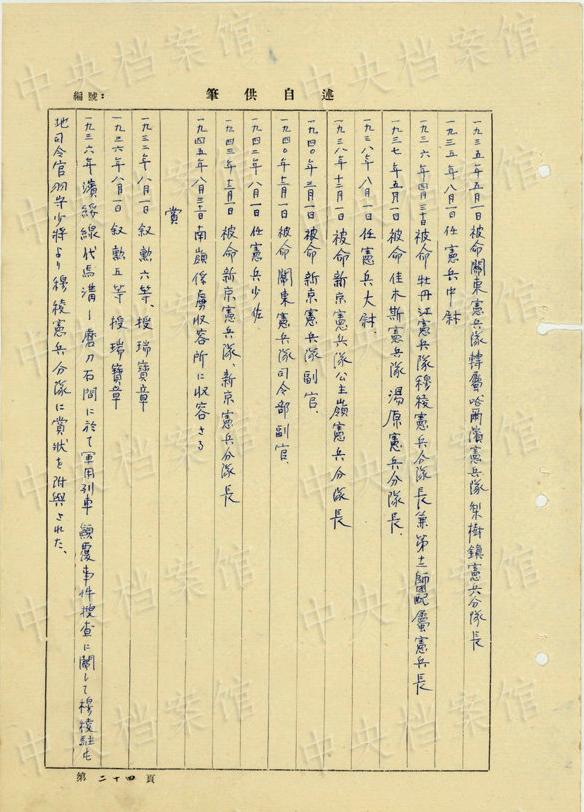 述自供筆
編號：
一九三五年五月一日被命關東憲兵隊轉屬哈爾濱憲兵隊梨樹鎮憲兵分隊長
一九三五年八月一日任憲兵中尉
一九三六年四月三十日被命牡丹江憲兵隊穆稜憲兵分隊長兼第十二師團配屬憲兵長
一九三七年五月一日被命佳木斯憲兵隊湯原憲兵分隊長、
一九三八年八月一日任憲兵大尉、
一九三八年十二月一日被命新京憲兵隊公主嶺憲兵分隊長
一九四〇年三月一日被命新京憲兵隊副官、
一九四〇年十二月一日被命關東憲兵隊司令部副官、
一九四二年八月一日任憲兵少佐、
一九四三年十二月一日被命新京憲兵隊、新京憲兵分隊長
一九四五年八月三十日南嶺俘虜收容所に收容さる
賞
一九三二年八月一日叙勲六等、授瑞寶章
一九三六年八月一日叙勲五等授瑞寶章
一九三六年濱綏線代馬溝ー磨刀石間に於て軍用列車顛覆事件搜查に關して穆稜駐屯
地司令官羽守少將より穆稜憲兵分隊に賞狀を附與された、
第二十四頁
中央档案馆